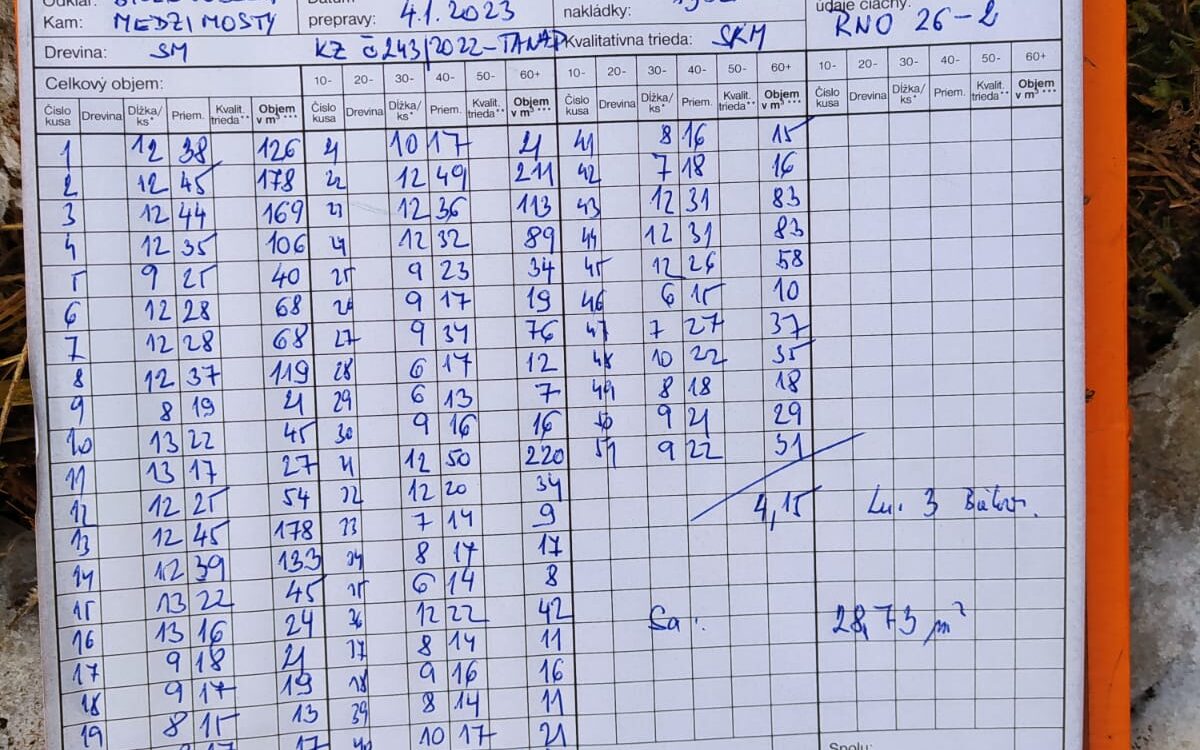 Kam: MEDZIMOSTY prepravy: 4.1.2023 nakládky: údaje ciachy:
RNO 26-2
Drevina: SM KZ č 243/2022-TANAP Kvalitatívna trieda: SKM
Celkový objem: 10- 20- 30- 40- 50- 60+ 10- 20- 30- 40- 50- 60+ 10- 20- 30- 40- 50- 60+
Číslo kusa Drevina Dĺžka/ks* Priem. Kvalit. trieda** Objem v m³*** Číslo kusa Drevina Dĺžka/ks* Priem. Kvalit. trieda** Objem v m³*** Číslo kusa Drevina Dĺžka/ks* Priem. Kvalit. trieda** Objem v m³*** Číslo kusa Drevina Dĺžka/ks* Priem. Kvalit. trieda** Objem v m³***
1 12 38 126 21 10 17 21 41 8 16 15
2 12 45 178 22 12 49 211 42 7 18 16
3 12 44 169 23 12 36 113 43 12 31 83
4 12 35 106 24 12 32 89 44 12 31 83
5 9 25 40 25 9 23 34 45 12 26 58
6 12 28 68 26 9 17 19 46 6 15 10
7 12 28 68 27 9 34 76 47 7 27 37
8 12 37 119 28 6 17 12 48 10 22 35
9 8 19 21 29 6 13 7 49 8 18 18
10 13 22 45 30 9 16 16 50 9 21 29
11 13 17 27 31 12 50 220 51 9 22 31
12 12 25 54 32 12 20 34 4,15
13 12 45 178 33 7 14 9
14 12 39 133 34 8 17 17
15 13 22 45 35 6 14 8
16 13 16 24 36 12 22 42 28,73 m³
17 9 18 21 37 8 14 11
18 9 17 19 38 9 16 16
19 8 15 13 39 8 14 11
17 17 40 10 17 21
Spolu: